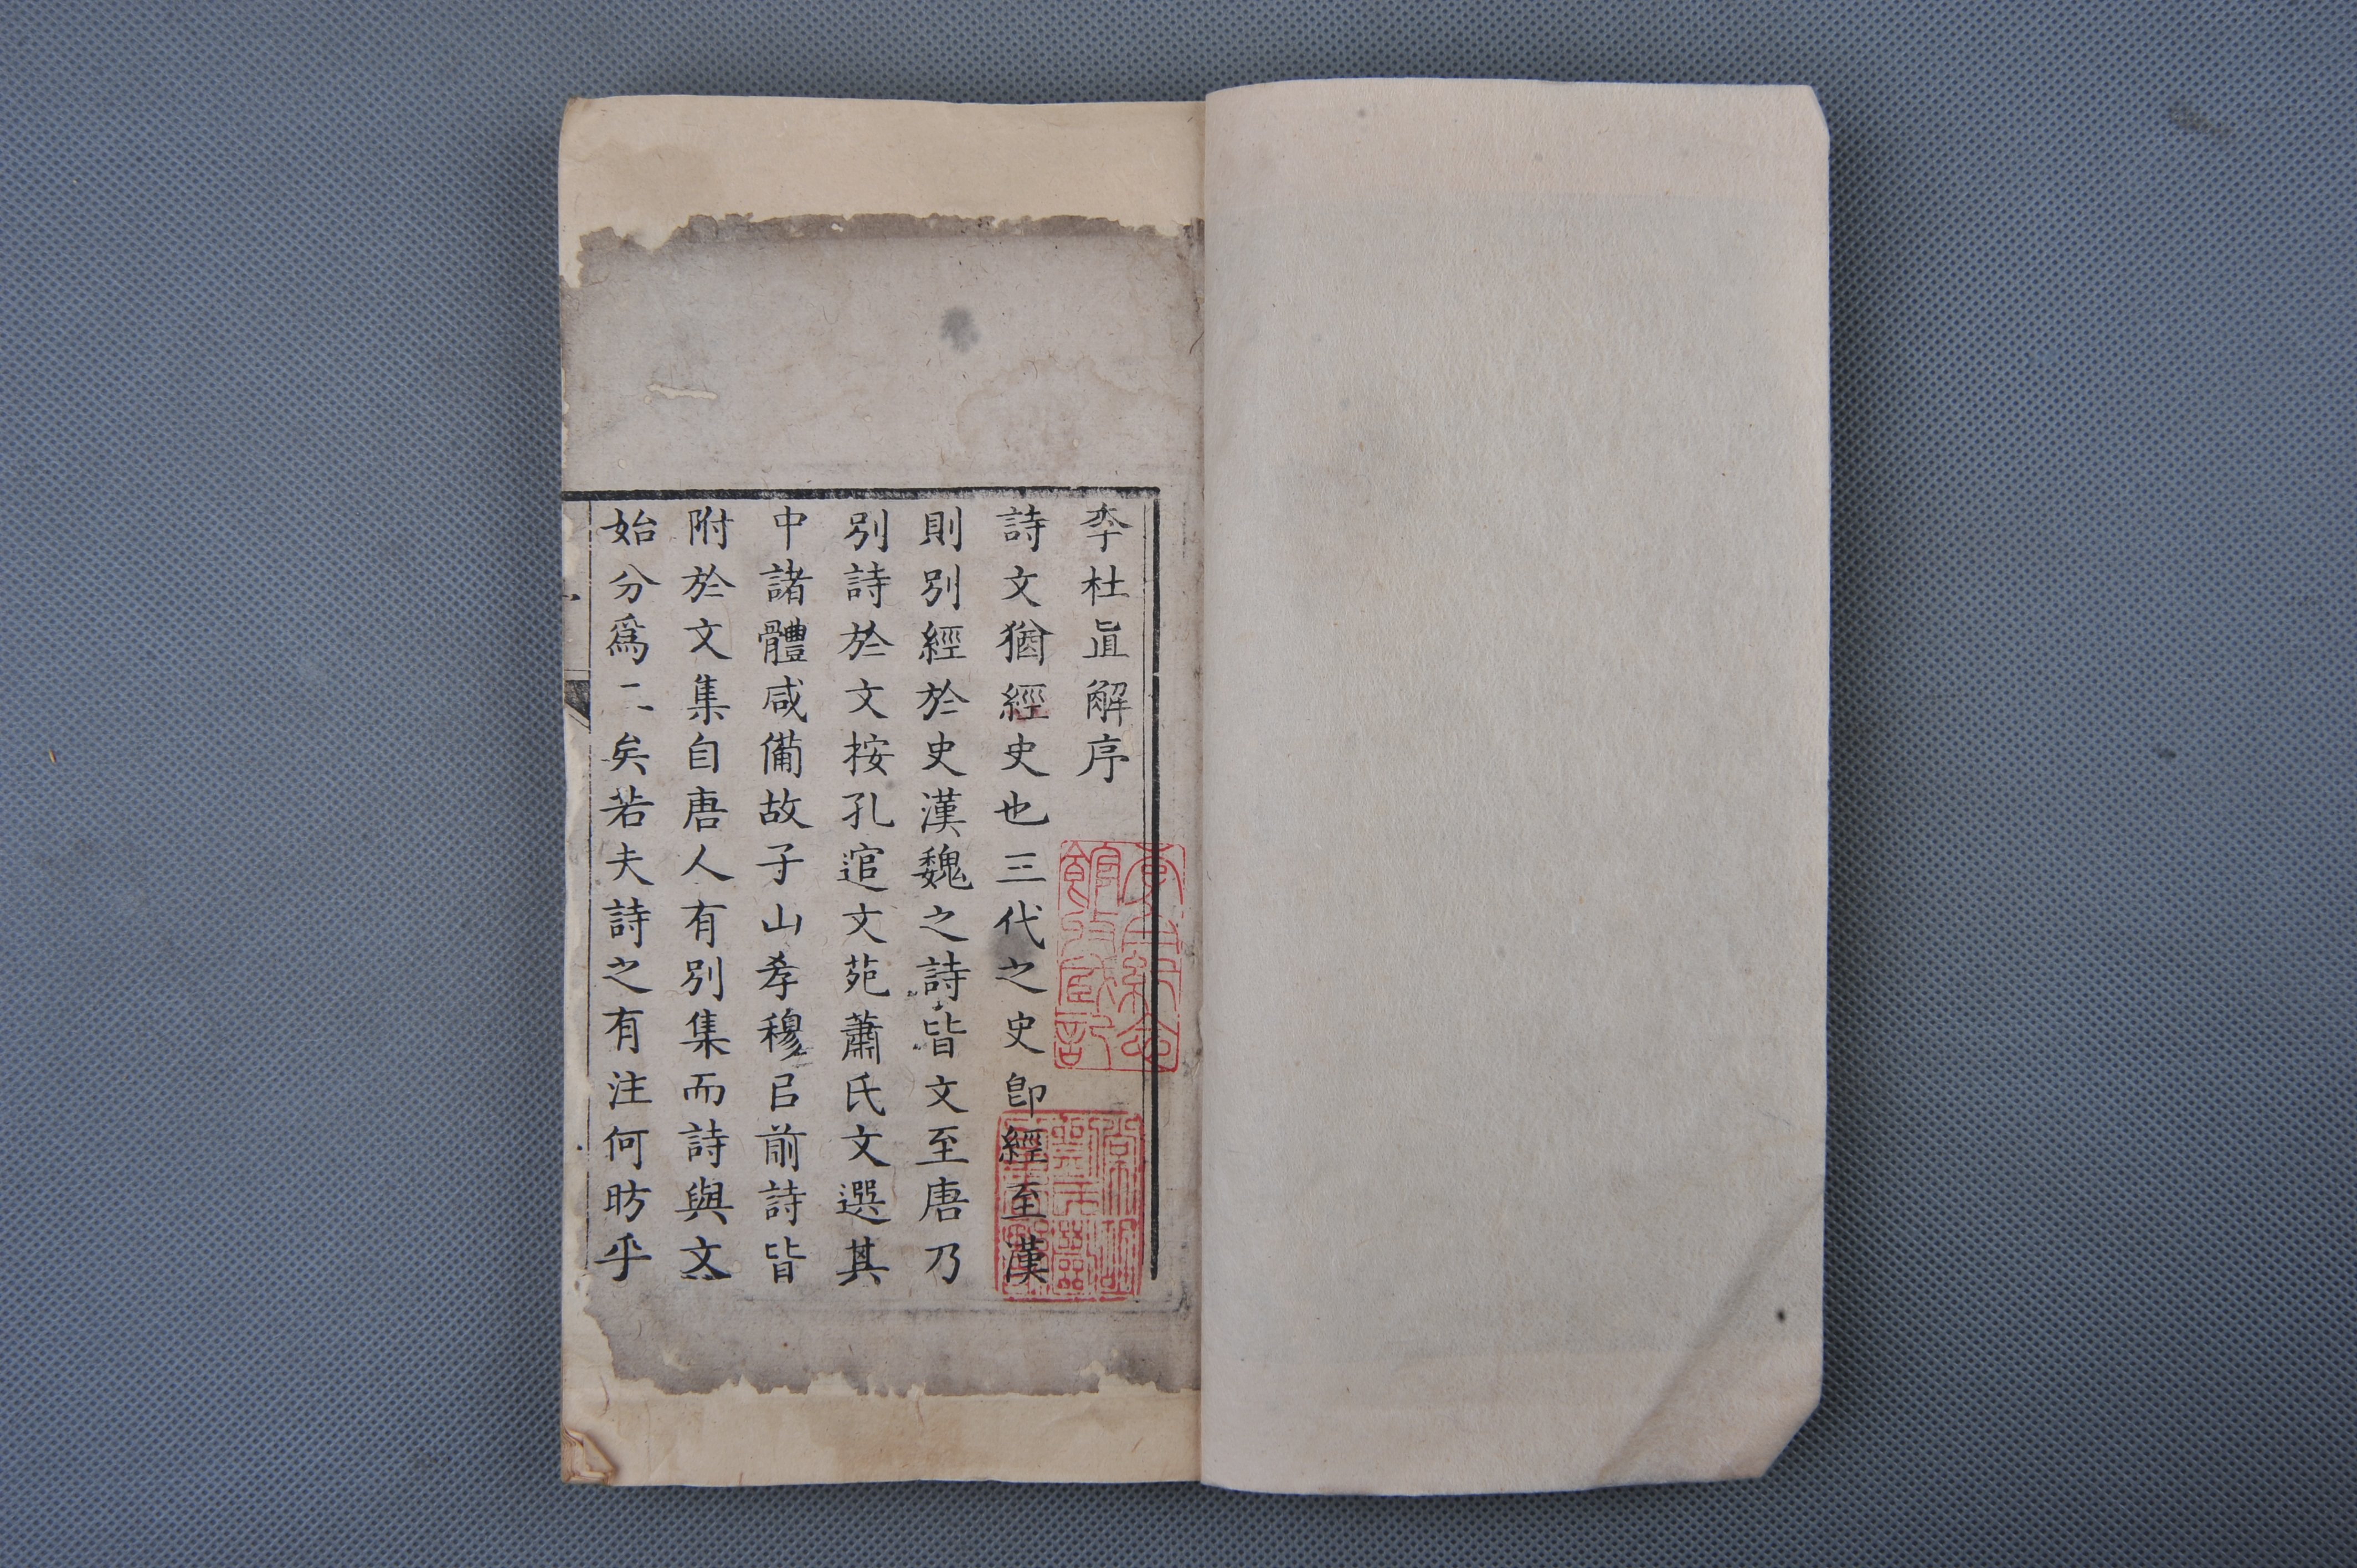 李杜直解序
詩文猶經史也三代之史卽經至漢
則別經於史漢魏之詩皆文至唐乃
別詩於文按孔逭文苑蕭氏文選其
中諸體咸備故子山孝穆㠯前詩皆
附於文集自唐人有別集而詩與文
始分爲二矣若夫詩之有注何昉乎